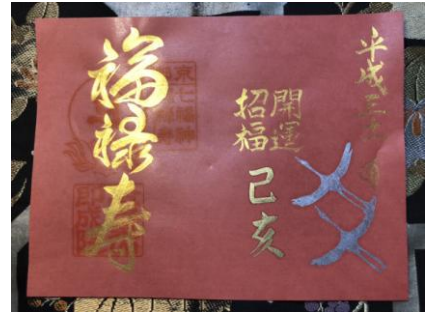 平成三
開運
招福
己亥
福禄寿